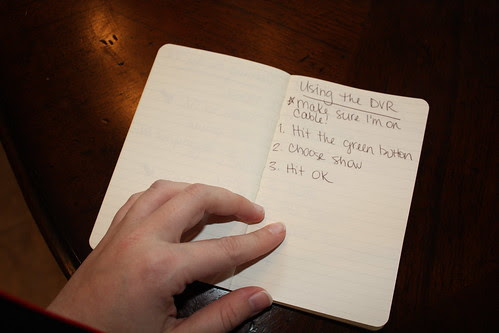 Using the DVR
*make sure I'm on
cable!
1. Hit the green button
2. Choose show
3. Hit OK